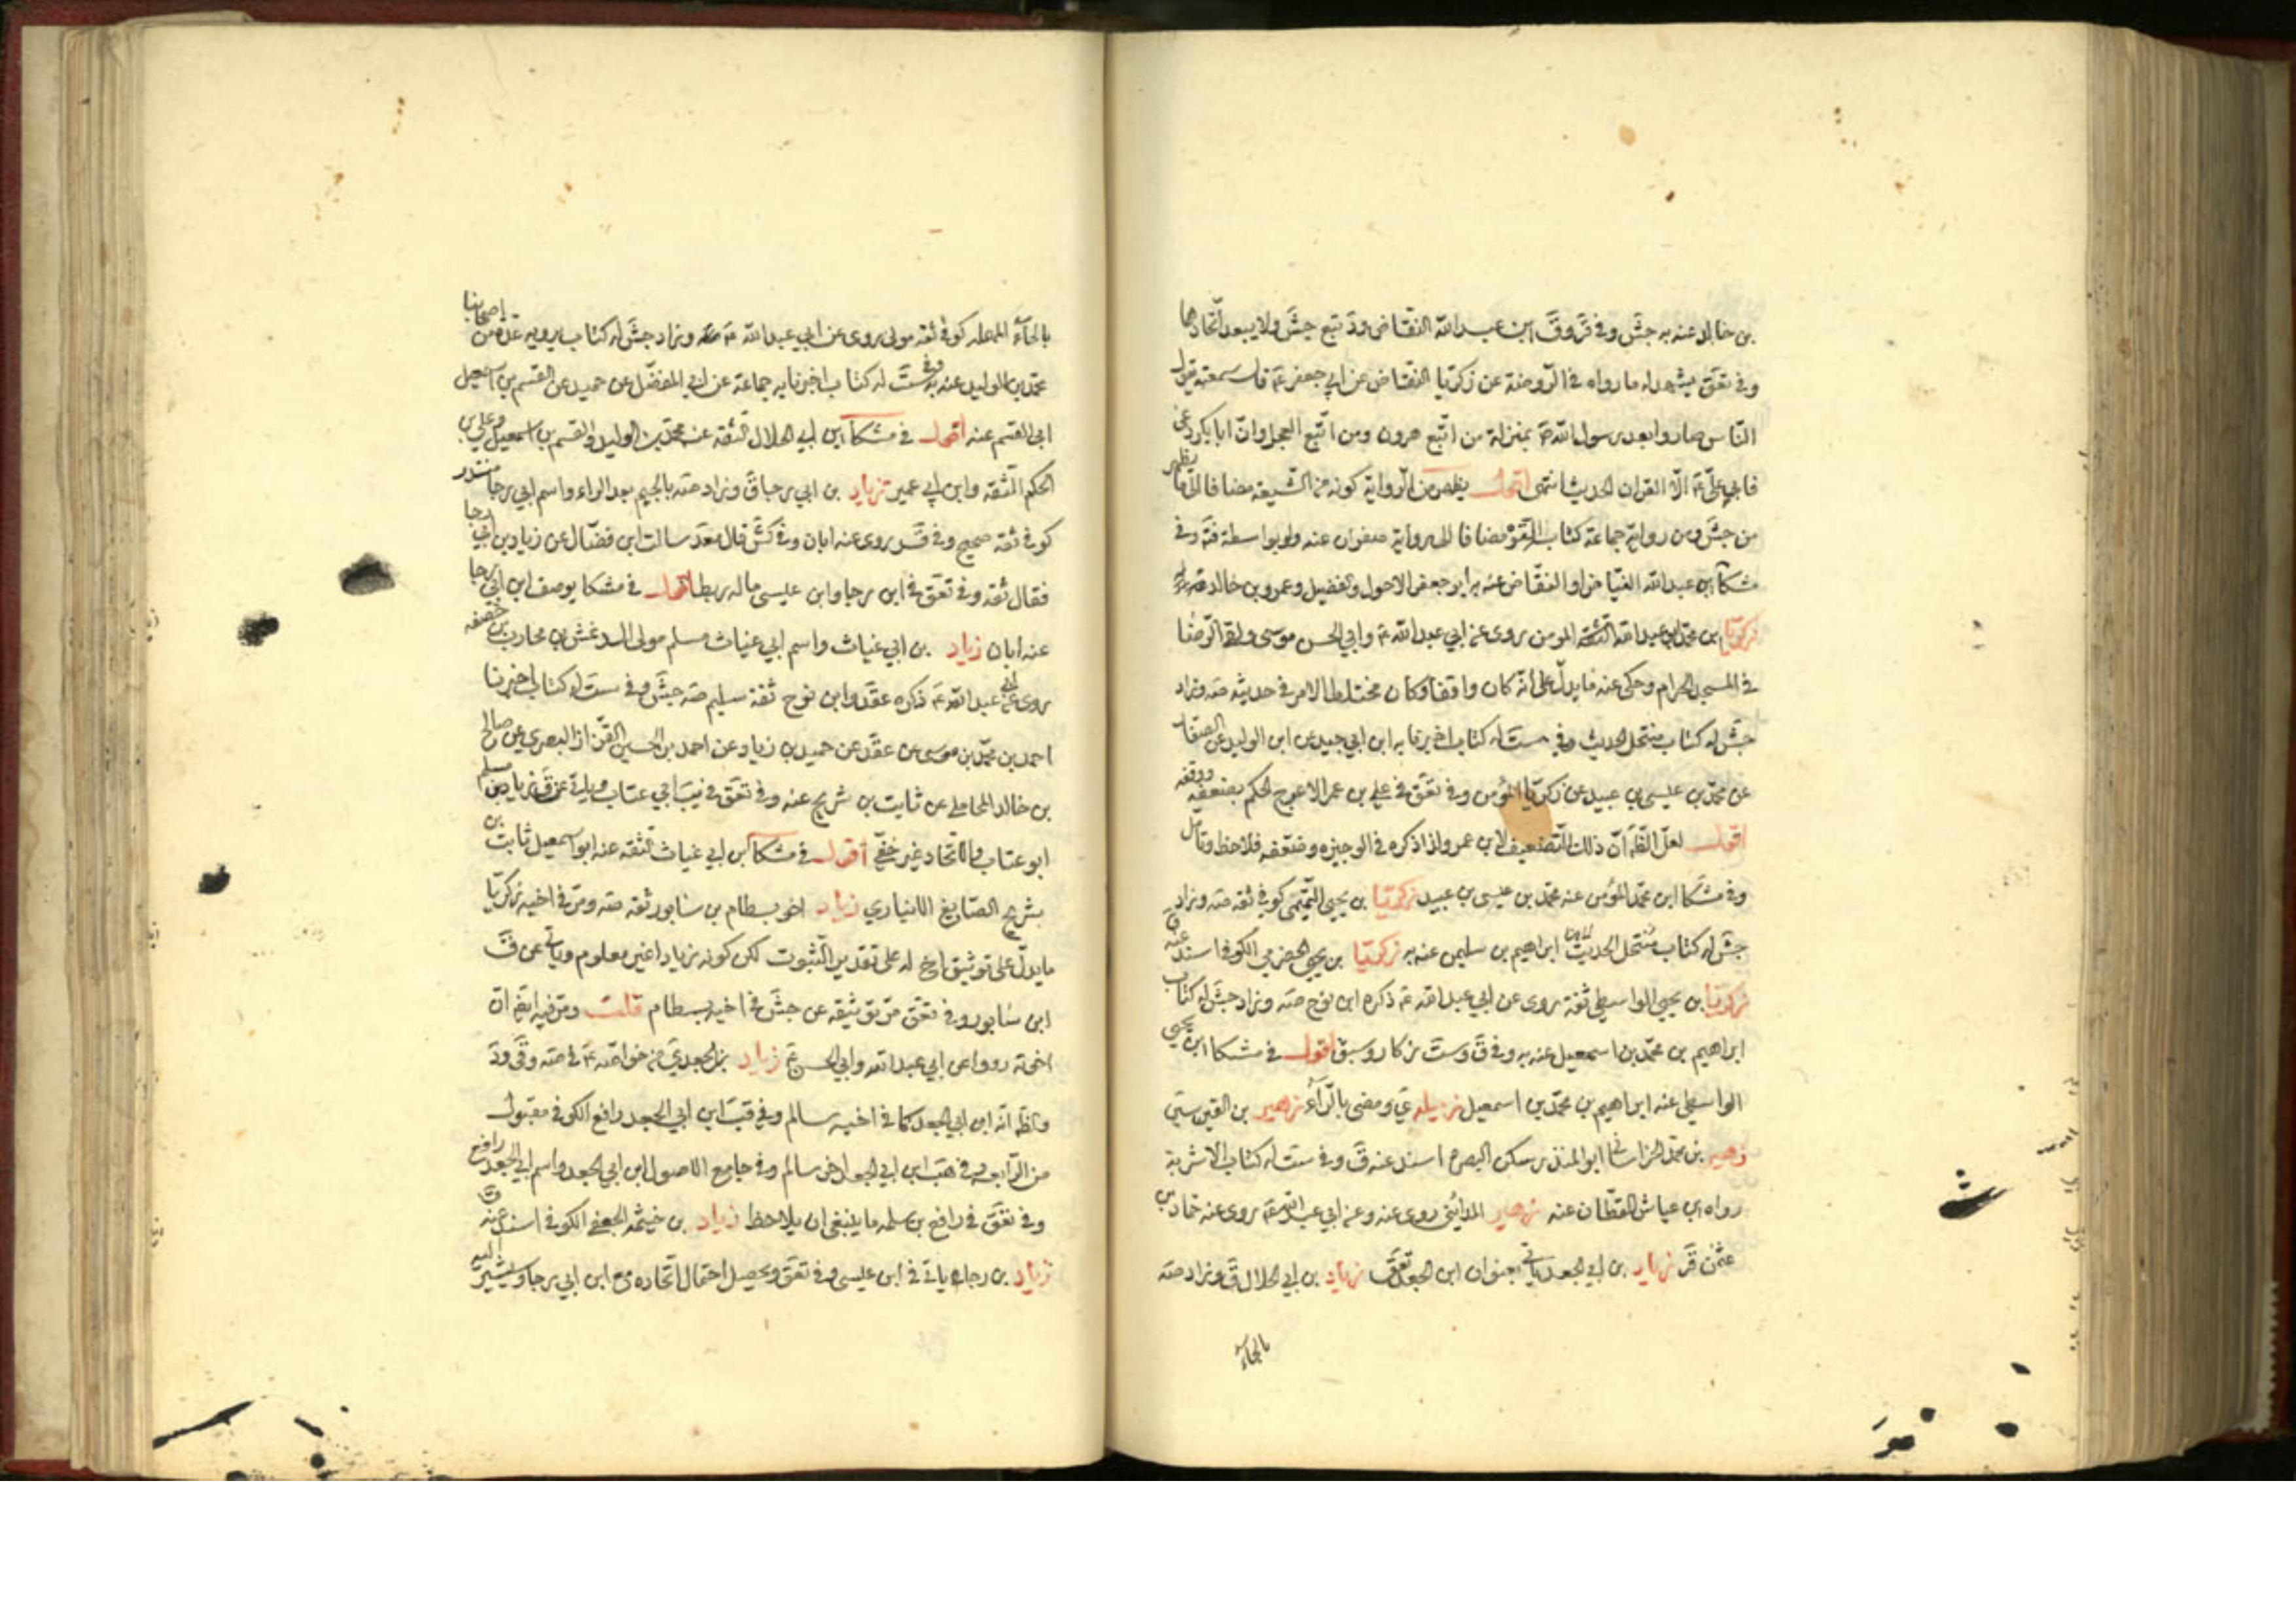 بن خالد عنه به جش وفي قر وق ابن عبد الله النقاض ود تبع جش ولا يبعد اتحادهما
وفي تعق يشهد له ما رواه في الروضة عن زكريا النقاض عن ابي جعفر ع قال سمعته يقول
الناس صاروا بعد رسول الله ص بمنزلة من اتبع هرون ومن اتبع العجل وان ابا بكر دعى
فابى علي ع الا القران الحديث انتهى اقول يظهر من الرواية كونه من الشيعة مضافا الى ما يظهر
من جش ومن رواية جماعة كتابه مضافا الى رواية صفوان عنه ولو بواسطة فتد وفي
مشكا ابن عبد الله الفياض او النقاض عنه ابو جعفر الاحول والفضيل وعمرو بن خالد
زكريا ابن محمد ابو عبد الله المومن روى عن ابي عبد الله ع وابي الحسن موسى ولقى الرضا
في المسجد الحرام وحكى عنه ما يدل على انه كان واقفا وكان مختلط الامر في حديثه صه وزاد
جش له كتاب منتحل الحديث وفي ست له كتاب اخبرنا به ابن ابي جيد عن ابن الوليد عن الصفار
عن محمد بن عيسى بن عبيد عن زكريا المؤمن وفي تعق في علي بن عمر الاعرج الحكم بضعفه ووقفه
اقول لعل الظ ان ذلك التضعيف لابن عمر ولذا ذكره في الوجيزه وضعفه فلاحظ وتامل
وفي مشكا ابن محمد المؤمن عنه محمد بن عيسى بن عبيد زكريا بن يحيى التميمي كوفي ثقه صه وزاد
جش له كتاب منتحل الحديث ابراهيم بن سليمن عنه به زكريا بن يحيى الحضرمي الكوفي اسند عنه ق
زكريا بن يحيى الواسطي ثقة روى عن ابي عبد الله ع ذكره ابن نوح صه وزاد جش له كتاب
ابراهيم بن محمد بن اسمعيل عنه به وفي ق وست زكار وسبق اقول في مشكا ابن يحيى
الواسطي عنه ابراهيم بن محمد بن اسمعيل زميله ومضى بالراء زهير بن القين سين
زهير بن محمد الخراساني ابو المنذر سكن البصره اسند عنه ق وفي ست له كتاب الاشربة
رواه ابن عياش القطان عنه زهير المدائني روى عنه وعن ابي عبد الله ع روى عنه حماد بن
عثمن قر زياد بن ابي الجعد ياتي بعنوان ابن الجعد تعق زياد بن ابي الحلال ق وزاد صه
بالحاء
بالحاء المهملة كوفي ثقه مولى روى عن ابي عبد الله ع وزاد جش له كتاب يرويه عدة من اصحابنا
محمد بن الوليد عنه به وفي ست له كتاب اخبرنا به جماعة عن ابي المفضل عن حميد عن القسم بن اسمعيل
ابي القسم عنه اقول في مشكا ابن ابي الحلال الثقه عنه محمد بن الوليد والقسم بن اسمعيل وعلي بن
الحكم الثقه وابن ابي عمير زياد بن ابي رجا ق وزاد صه بالجيم بعد الراء واسم ابي رجا منذر
كوفي ثقه صحيح وفي قر روى عنه ابان وفي كش قال محمد سالت ابن فضال عن زياد بن ابي رجا
فقال ثقه وفي تعق في ابن رجا وابن عيسى ماله ربط اقول في مشكا يوصف ابن ابي رجا
عنه ابان زياد بن ابي غياث واسم ابي غياث مسلم مولى ال دغش بن محارب بن خصفه
روى عن ابي عبد الله ع ذكره عقد وابن نوح ثقة سليم صه جش وفي ست له كتاب اخبرنا
احمد بن محمد بن موسى عن عقد عن حميد بن زياد عن احمد بن الحسين القزاز البصري عن صالح
بن خالد المحاملي عن ثابت بن شريح عنه وفي تعق في نسب ابي عتاب وياتي عن ق زياد بن مسلم
ابو عتاب والاتحاد غير خفي اقول في مشكا ابن ابي غياث الثقه عنه ابو اسمعيل ثابت بن
شريح الصايغ الانباري زياد اخو بسطام بن سابور ثقه صه ومر في اخيه زكريا
ما يدل على توثيق اخ له على تقدير الثبوت لكن كونه زيادا غير معلوم وياتي عن ق
ابن سابور وفي تعق مر توثيقه عن جش في اخيه بسطام قلت ومر فيه ايضا ان
اخوته رووا عن ابي عبد الله وابي الحسن ع زياد بن الجعد ي من خواصه ع في صه وقى ود
والظ انه ابن ابي الجعد كما في اخيه سالم وفي قب ابن ابي الجعد رافع الكوفي مقبول
من الرابعه وفي هب ابن ابي الجعد اخو سالم وفي جامع الاصول ابن ابي الجعد واسم ابي الجعد رافع
وفي تعق في رافع بن سلمه ما ينبغي ان يلاحظ زياد بن خيثمه الجعفي الكوفي اسند عنه ق
زياد بن رجاء ياتي في ابن عيسى وفي تعق ويحصل احتمال اتحاده مع ابن ابي رجا ويشير اليه